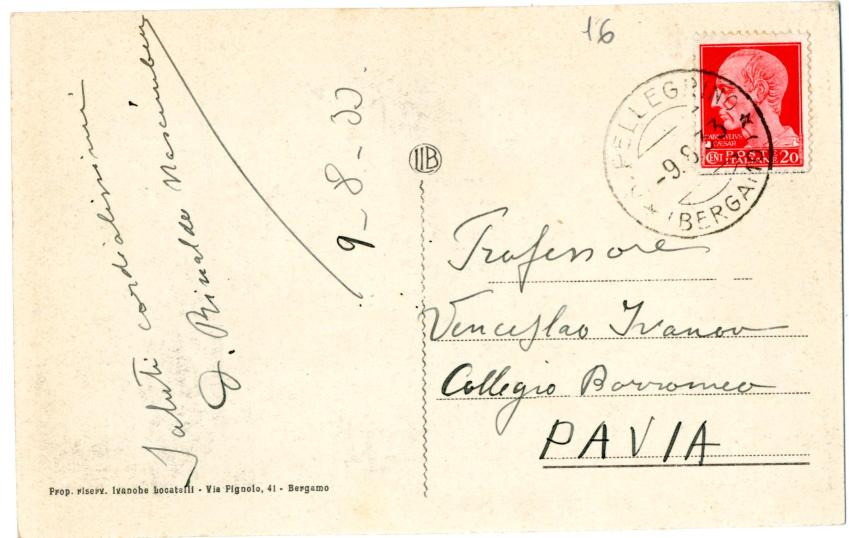 Saluti cordialissimi
D. Rinaldo Nascimbeni
9-8-33.
IIB
16
S. PELLEGRINO
-9.8.33
(BERGAMO)
IVLIVS
CAESAR
CENT POSTE ITALIANE 20
Professore
Venceslao Ivanov
Collegio Borromeo
PAVIA
Prop. riserv. Ivanohe Locatelli - Via Pignolo, 41 - Bergamo